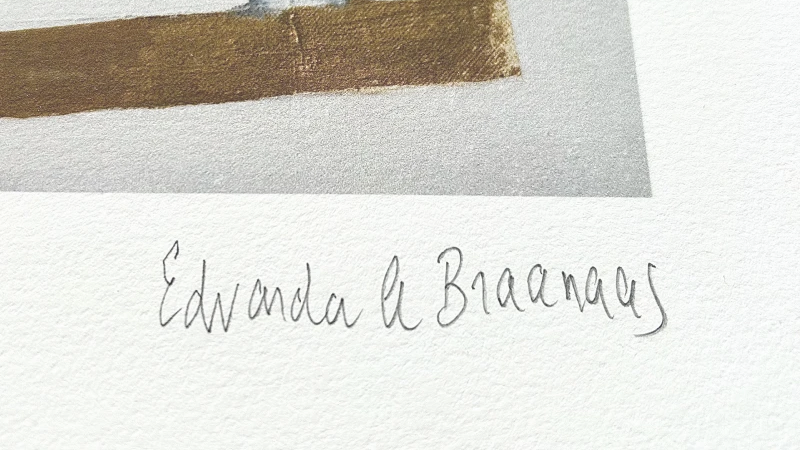 Edvarda A Braanaas